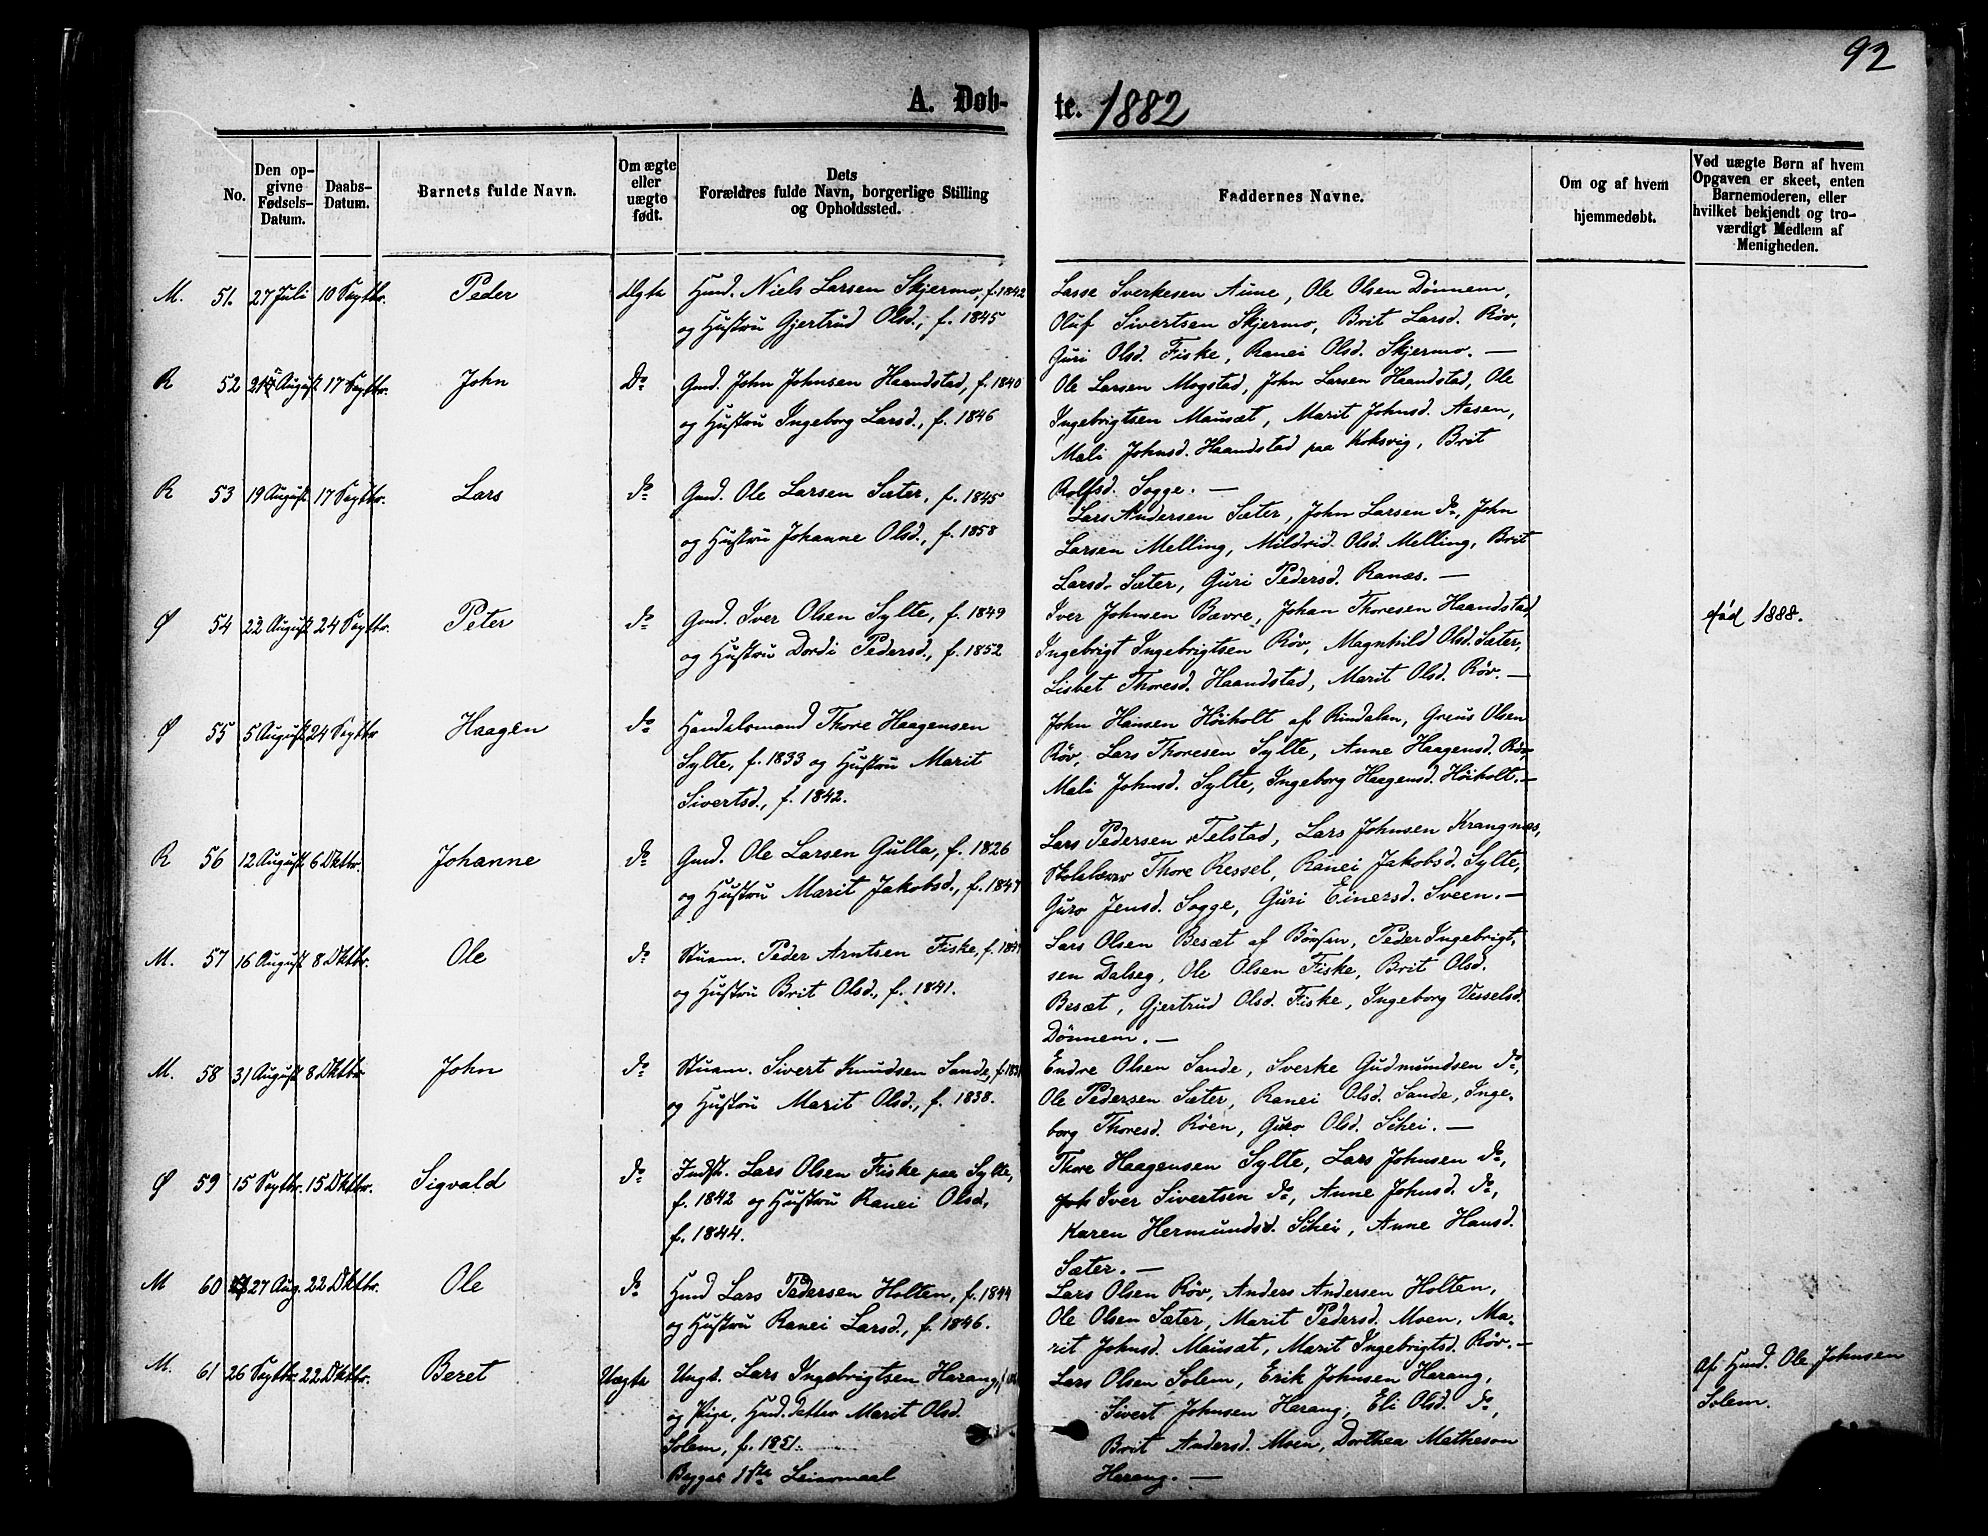 92
A. Døb- te. 1882
No.
Den op-
givne
Fødsels-
Datum.
Daabs-
Datum.
Barnets fulde Navn.
Om ægte
eller
uægte
født.
Dets
Forældres fulde Navn, borgerlige Stilling
og Opholdssted.
Faddernes Navne.
Om og af hvem
hjemmedøbt.
Ved uægte Børn af hvem
Opgaven er skeet, enten
Barnemoderen, eller
hvilket bekjendt og tro-
værdigt Medlem af
Menigheden.
M. 51. 27 Juli 10 Septbr. Peder Ægte Husd. Niels Larsen Skjermo, f. 1842
og Hustru Gjertrud Olsd., f. 1845
Lasse Sverkesen Aune, Ole Olsen Dønnem,
Oluf Sivertsen Skjermo, Brit Larsd. Røv,
Guri Olsd. Fiske, Ranei Olsd. Skjermo. —
R 52 August 17 Septbr. John Do Gmd. John Johnsen Haandstad, f. 1840
og Hustru Ingeborg Larsd., f. 1846
Ole Larsen Mogstad, John Larsen Haandstad, Ole
Ingebrigtsen Mausæt, Marit Johnsd. Aasen,
Mali Johnsd. Haandstad paa Koksvig, Brit
Rolfsd. Sogge. —
R 53 19 August 17 Septbr. Lars do Gmd. Ole Larsen Sæter, f. 1845
og Hustru Johanne Olsd., f. 1858
Lars Andersen Sæter, John Larsen do, John
Larsen Melling, Mildrid Olsd. Melling, Brit
Larsd. Sæter, Guri Pedersd. Ranæs. —
Ø 54 22 August 24 Septbr. Peter do Gmd. Iver Olsen Sylte, f. 1849
og Hustru Dordi Pedersd., f. 1852
Iver Johnsen Bævre, Johan Thoresen Haandstad,
Ingebrigt Ingebrigtsen Røv, Magnhild Olsd. Sæter,
Lisbet Thoresd. Haandstad, Marit Olsd. Røv. —
død 1888.
Ø 55 5 August 24 Septbr Haagen do Handelsmand Thore Haagensen
Sylte, f. 1833 og Hustru Marit
Sivertsd., f. 1842.
John Hansen Höiholt af Rindalen, Greus Olsen
Røv, Lars Thoresen Sylte, Anne Haagensd. Røv,
Mali Johnsd. Sylte, Ingeborg Haagensd. Höiholt. —
R 56 12 August 6 Oktbr. Johanne do Gmd. Ole Larsen Gulla, f. 1826
og Hustru Marit Jakobsd., f. 1847
Lars Pedersen Telstad, Lars Johnsen Krangnæs,
Skolelærer Thore Ressel, Ranei Jakobsd. Sylte,
Guro Jensd. Sogge, Guri Einersd. Sveen. —
M. 57 16 August 8 Oktbr. Ole do Stuam. Peder Arntsen Fiske, f.
og Hustru Brit Olsd., f. 1841.
Lars Olsen Besæt af Börsen, Peder Ingebrigt-
sen Dalseg, Ole Olsen Fiske, Brit Olsd.
Besæt, Gjertrud Olsd. Fiske, Ingeborg Vesselsd.
Dönnem. —
M. 58 31 August 8 Oktbr John do Stuam. Sivert Knudsen Sande, f.
og Hustru Marit Olsd., f. 1838.
Endre Olsen Sande, Sverke Gudmundsen do,
Ole Pedersen Sæter, Ranei Olsd. Sande, Inge-
borg Thoresd. Röen, Guro Olsd. Schei. —
Ø 59 15 Septbr. 15 Oktbr. Sigvald do Indst. Lars Olsen Fiske paa Sylte,
f. 1842 og Hustru Ranei Olsd.,
f. 1844.
Thore Haagensen Sylte, Lars Johnsen do,
Joh Iver Sivertsen do, Anne Johnsd. do,
Karen Hermundsd. Schei, Anne Hansd.
Sæter. —
M 60 27 Aug. 22 Oktbr. Ole do Husd Lars Pedersen Holten, f. 1844
og Hustru Ranei Larsd., f. 1846.
Lars Olsen Røv, Anders Andersen Holten,
Ole Olsen Sæter, Marit Pedersd. Moen, Ma-
rit Johnsd. Mausæt, Marit Ingebrigtsd. Røv. —
M. 61 26 Septbr. 22 Oktbr. Beret Uægte Ungk. Lars Ingebrigtsen Harang,
og Pige, Husd. datter Marit Olsd.
Solem, f. 1851.
Begges 1ste Leiermaal
Lars Olsen Solem, Erik Johnsen Harang,
Sivert Johnsen Harang, Eli Olsd. do,
Brit Andersd. Moen, Dorthea Matheson
Harang. —
Af Husd. Ole Johnsen
Solem.